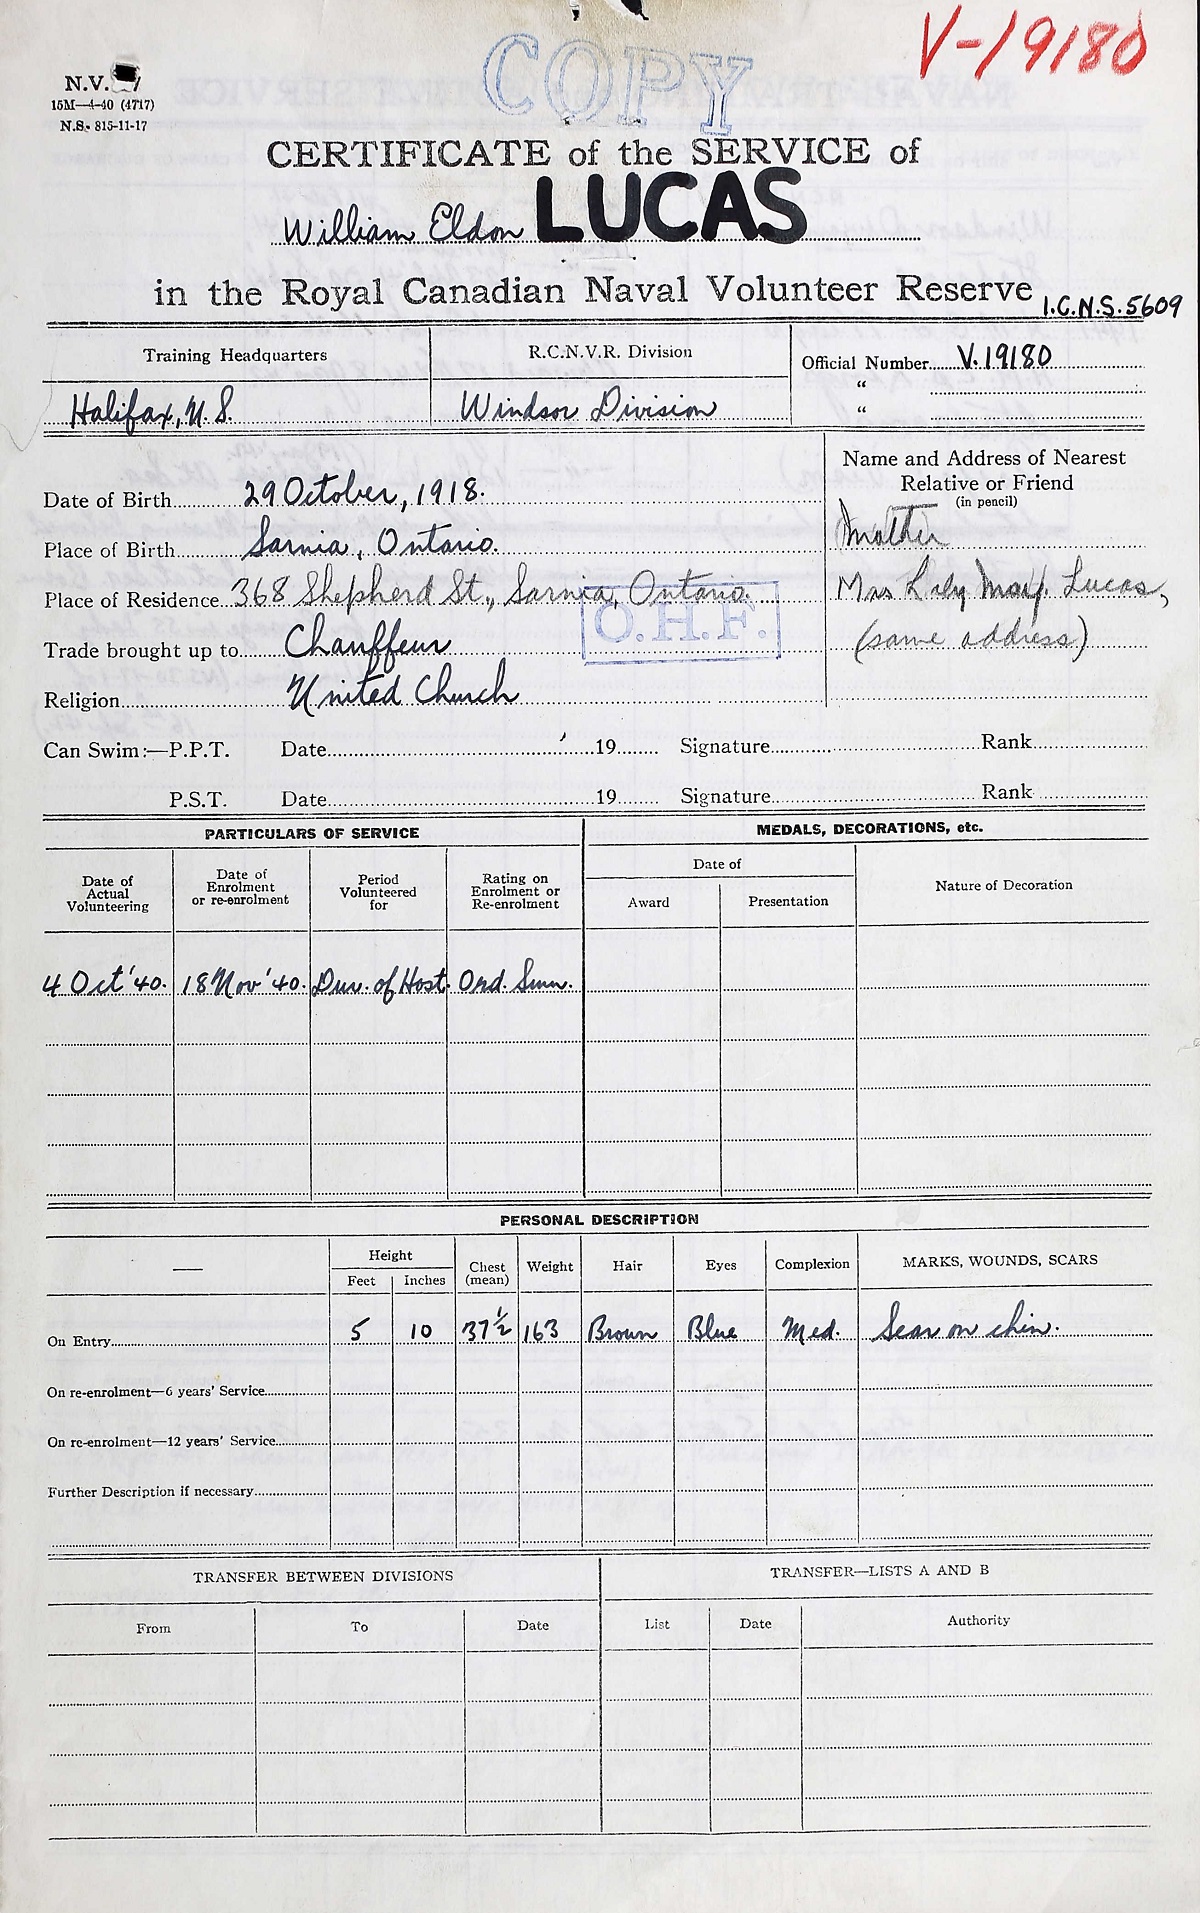 V-19180
COPY
N.V.
15M—4-40 (4717)
N.S. 815-11-17
CERTIFICATE of the SERVICE of
William Eldon LUCAS
in the Royal Canadian Naval Volunteer Reserve I.C.N.S. 5609
Training Headquarters R.C.N.V.R. Division Official Number V. 19180
"
Halifax, N.S. Windsor Division "
Name and Address of Nearest
Relative or Friend
(in pencil)
Date of Birth 29 October, 1918.
Mother
Place of Birth Sarnia, Ontario.
Place of Residence 368 Shepherd St., Sarnia, Ontario. Mrs Lily May. Lucas,
O.H.F.
Trade brought up to Chauffeur (same address)
Religion United Church
Can Swim:—P.P.T. Date 19 Signature Rank
P.S.T. Date 19 Signature Rank
PARTICULARS OF SERVICE MEDALS, DECORATIONS, etc.
Date of Actual Volunteering Date of Enrolment or re-enrolment Period Volunteered for Rating on Enrolment or Re-enrolment Date of Nature of Decoration
Award Presentation
4 Oct '40. 18 Nov '40. Dur. of Host. Ord. Smn.
PERSONAL DESCRIPTION
— Height Chest (mean) Weight Hair Eyes Complexion MARKS, WOUNDS, SCARS
Feet Inches
On Entry 5 10 37½ 163 Brown Blue Med. Scar on chin.
On re-enrolment—6 years' Service
On re-enrolment—12 years' Service
Further Description if necessary
TRANSFER BETWEEN DIVISIONS TRANSFER—LISTS A AND B
From To Date List Date Authority